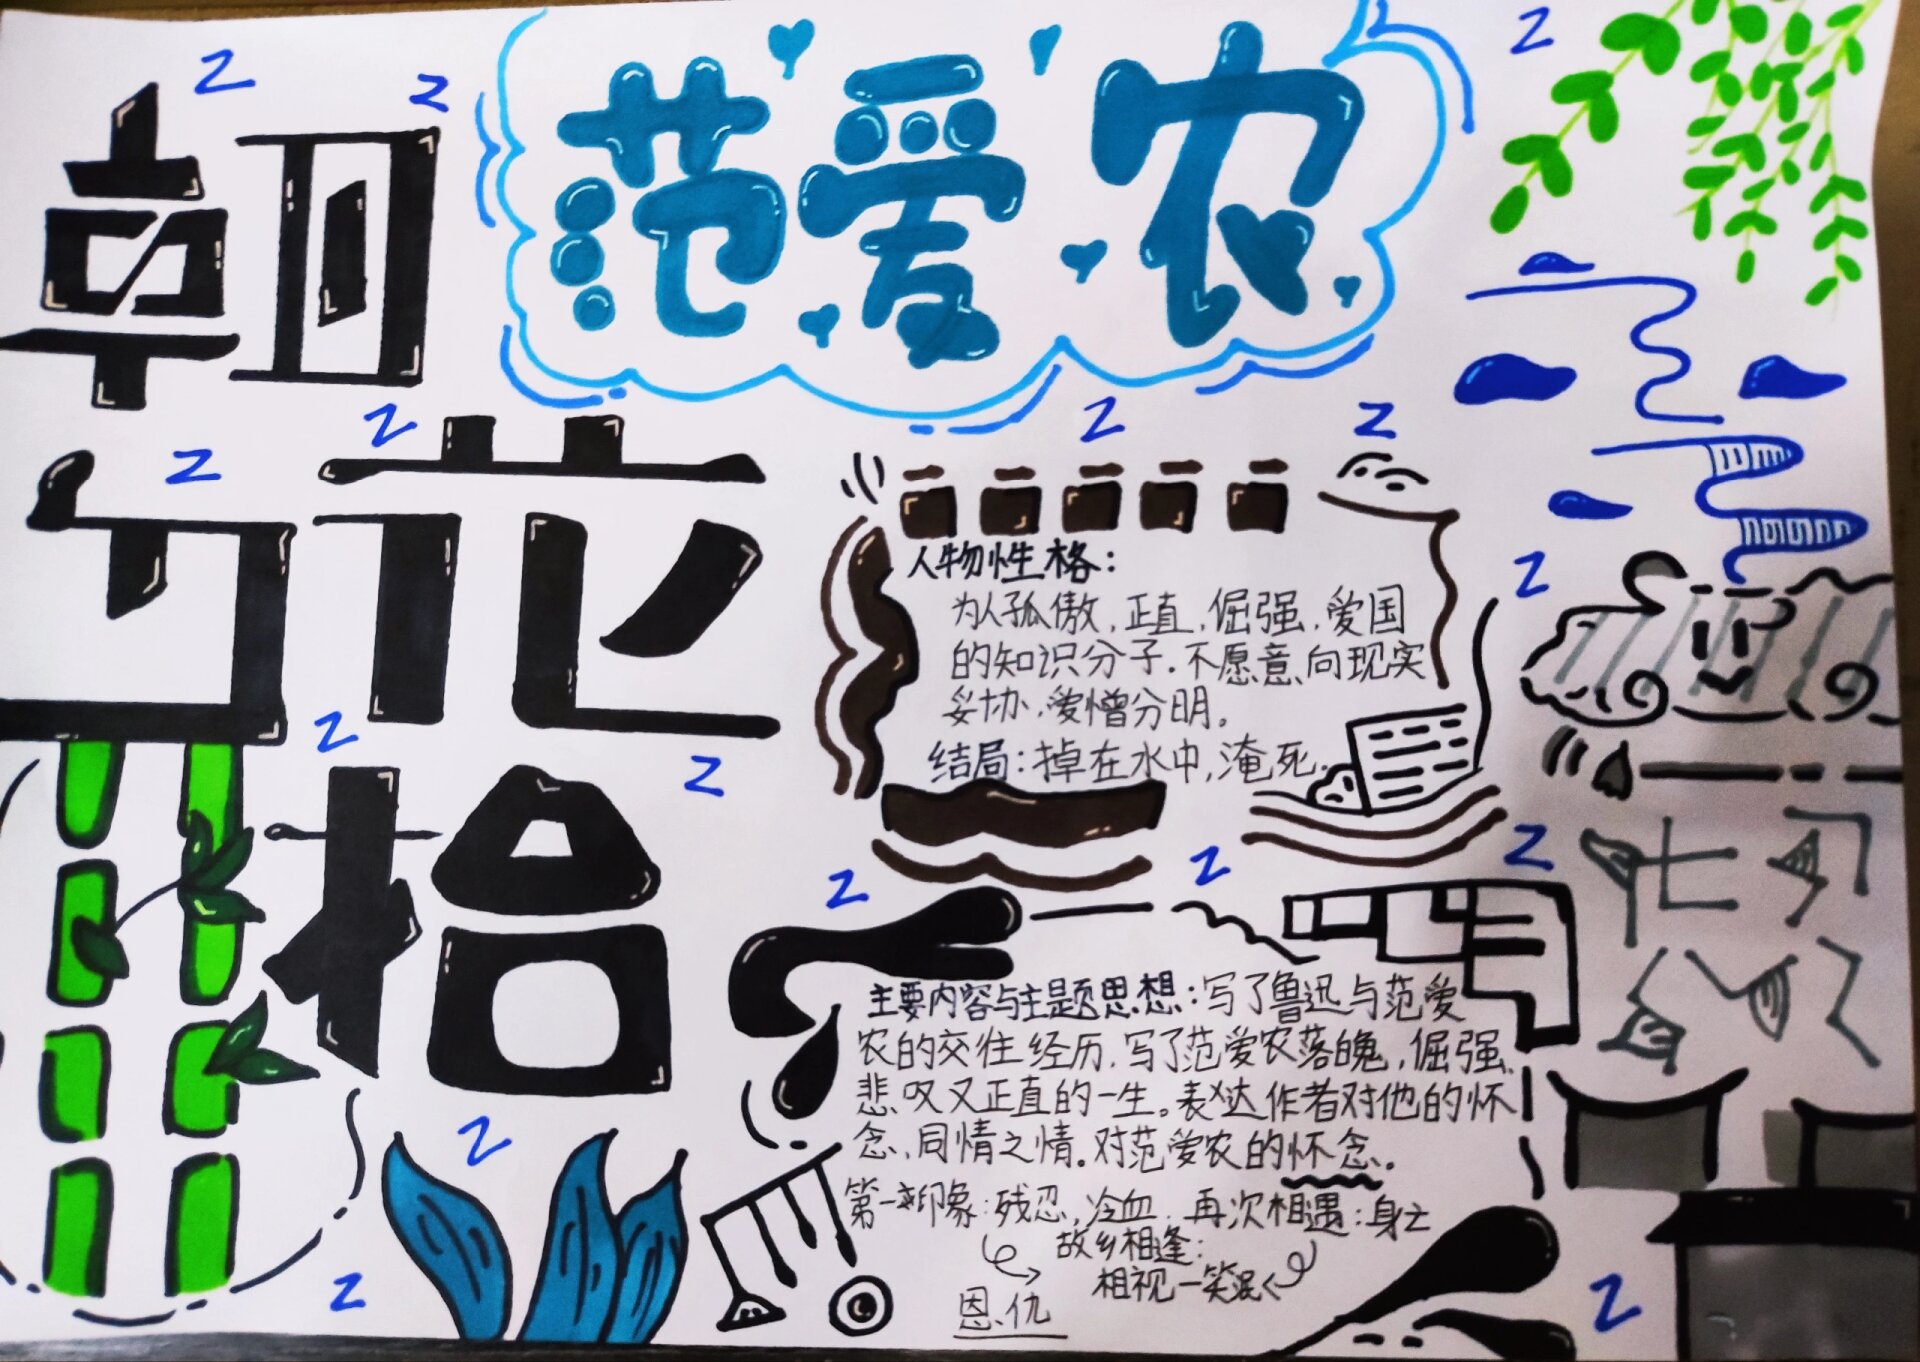 范爱农
朝
花
夕
拾
人物性格：
为人孤傲，正直，倔强，爱国
的知识分子。不愿意向现实
妥协，爱憎分明。
结局：掉在水中，淹死。
主要内容与主题思想：写了鲁迅与范爱
农的交往经历，写了范爱农落魄，倔强、
悲叹又正直的一生。表达作者对他的怀
念，同情之情。对范爱农的怀念。
第一印象：残忍，冷血 再次相遇：身亡
故乡相逢：
相视一笑泯
恩仇